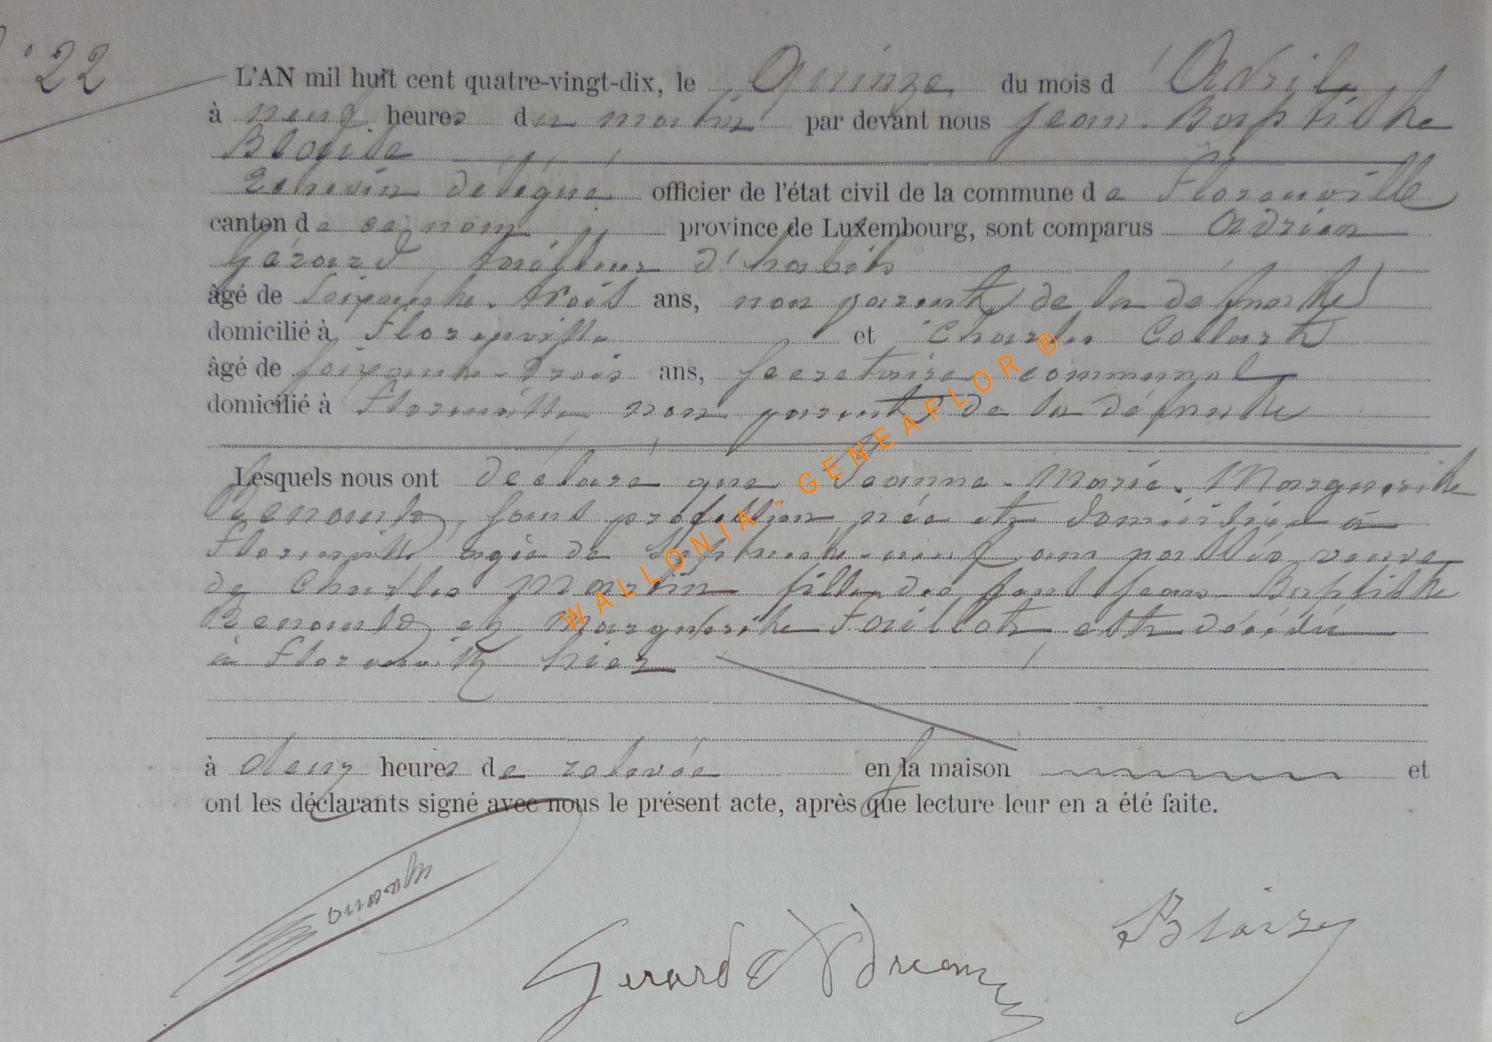 22
L'AN mil huit cent quatre-vingt-dix, le Quinze du mois d'Avril
à neuf heures du matin par devant nous Jean-Baptiste
Blaise
Echevin délégué officier de l'état civil de la commune de Florenville
canton de ce nom province de Luxembourg, sont comparus Adrien
Gérard, tailleur d'habits
âgé de soixante-trois ans, non parent de la défunte
domicilié à Florenville et Charles Collart
âgé de soixante-trois ans, secrétaire communal
domicilié à Florenville non parent de la défunte
Lesquels nous ont déclaré que Jeanne-Marie-Marguerite
Renauld, sans profession née et domiciliée à
Florenville agée de septante-neuf ans passés veuve
de Charles Martin fille des feus Jean-Baptiste
Renauld et Marguerite Taillot est décédée
à Florenville hier
à deux heures de relevée en sa maison et
ont les déclarants signé avec nous le présent acte, après que lecture leur en a été faite.
Gerard Adrien
Blaise
WALLONIA - GENEAFLOR ®